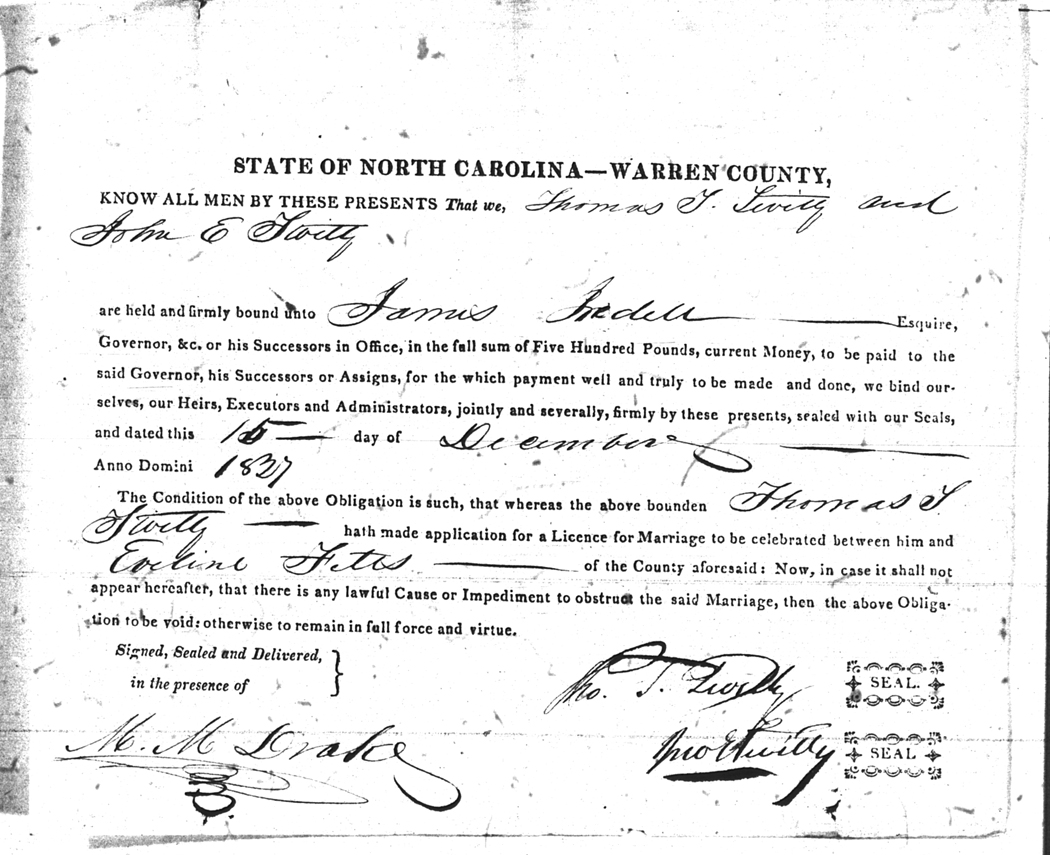 STATE OF NORTH CAROLINA—WARREN COUNTY,
KNOW ALL MEN BY THESE PRESENTS That we, Thomas T. Twitty and
John E Twitty
are held and firmly bound unto James Iredell Esquire,
Governor, &c. or his Successors in Office, in the full sum of Five Hundred Pounds, current Money, to be paid to the
said Governor, his Successors or Assigns, for the which payment well and truly to be made and done, we bind our-
selves, our Heirs, Executors and Administrators, jointly and severally, firmly by these presents, sealed with our Seals,
and dated this 15 day of December
Anno Domini 1827
The Condition of the above Obligation is such, that whereas the above bounden Thomas T
Twitty hath made application for a Licence for Marriage to be celebrated between him and
Eveline Fitts of the County aforesaid: Now, in case it shall not
appear hereafter, that there is any lawful Cause or Impediment to obstruct the said Marriage, then the above Obliga-
tion to be void: otherwise to remain in full force and virtue.
Signed, Sealed and Delivered,
in the presence of
Tho. T. Twitty SEAL.
M. M Drake Jno E Twitty SEAL